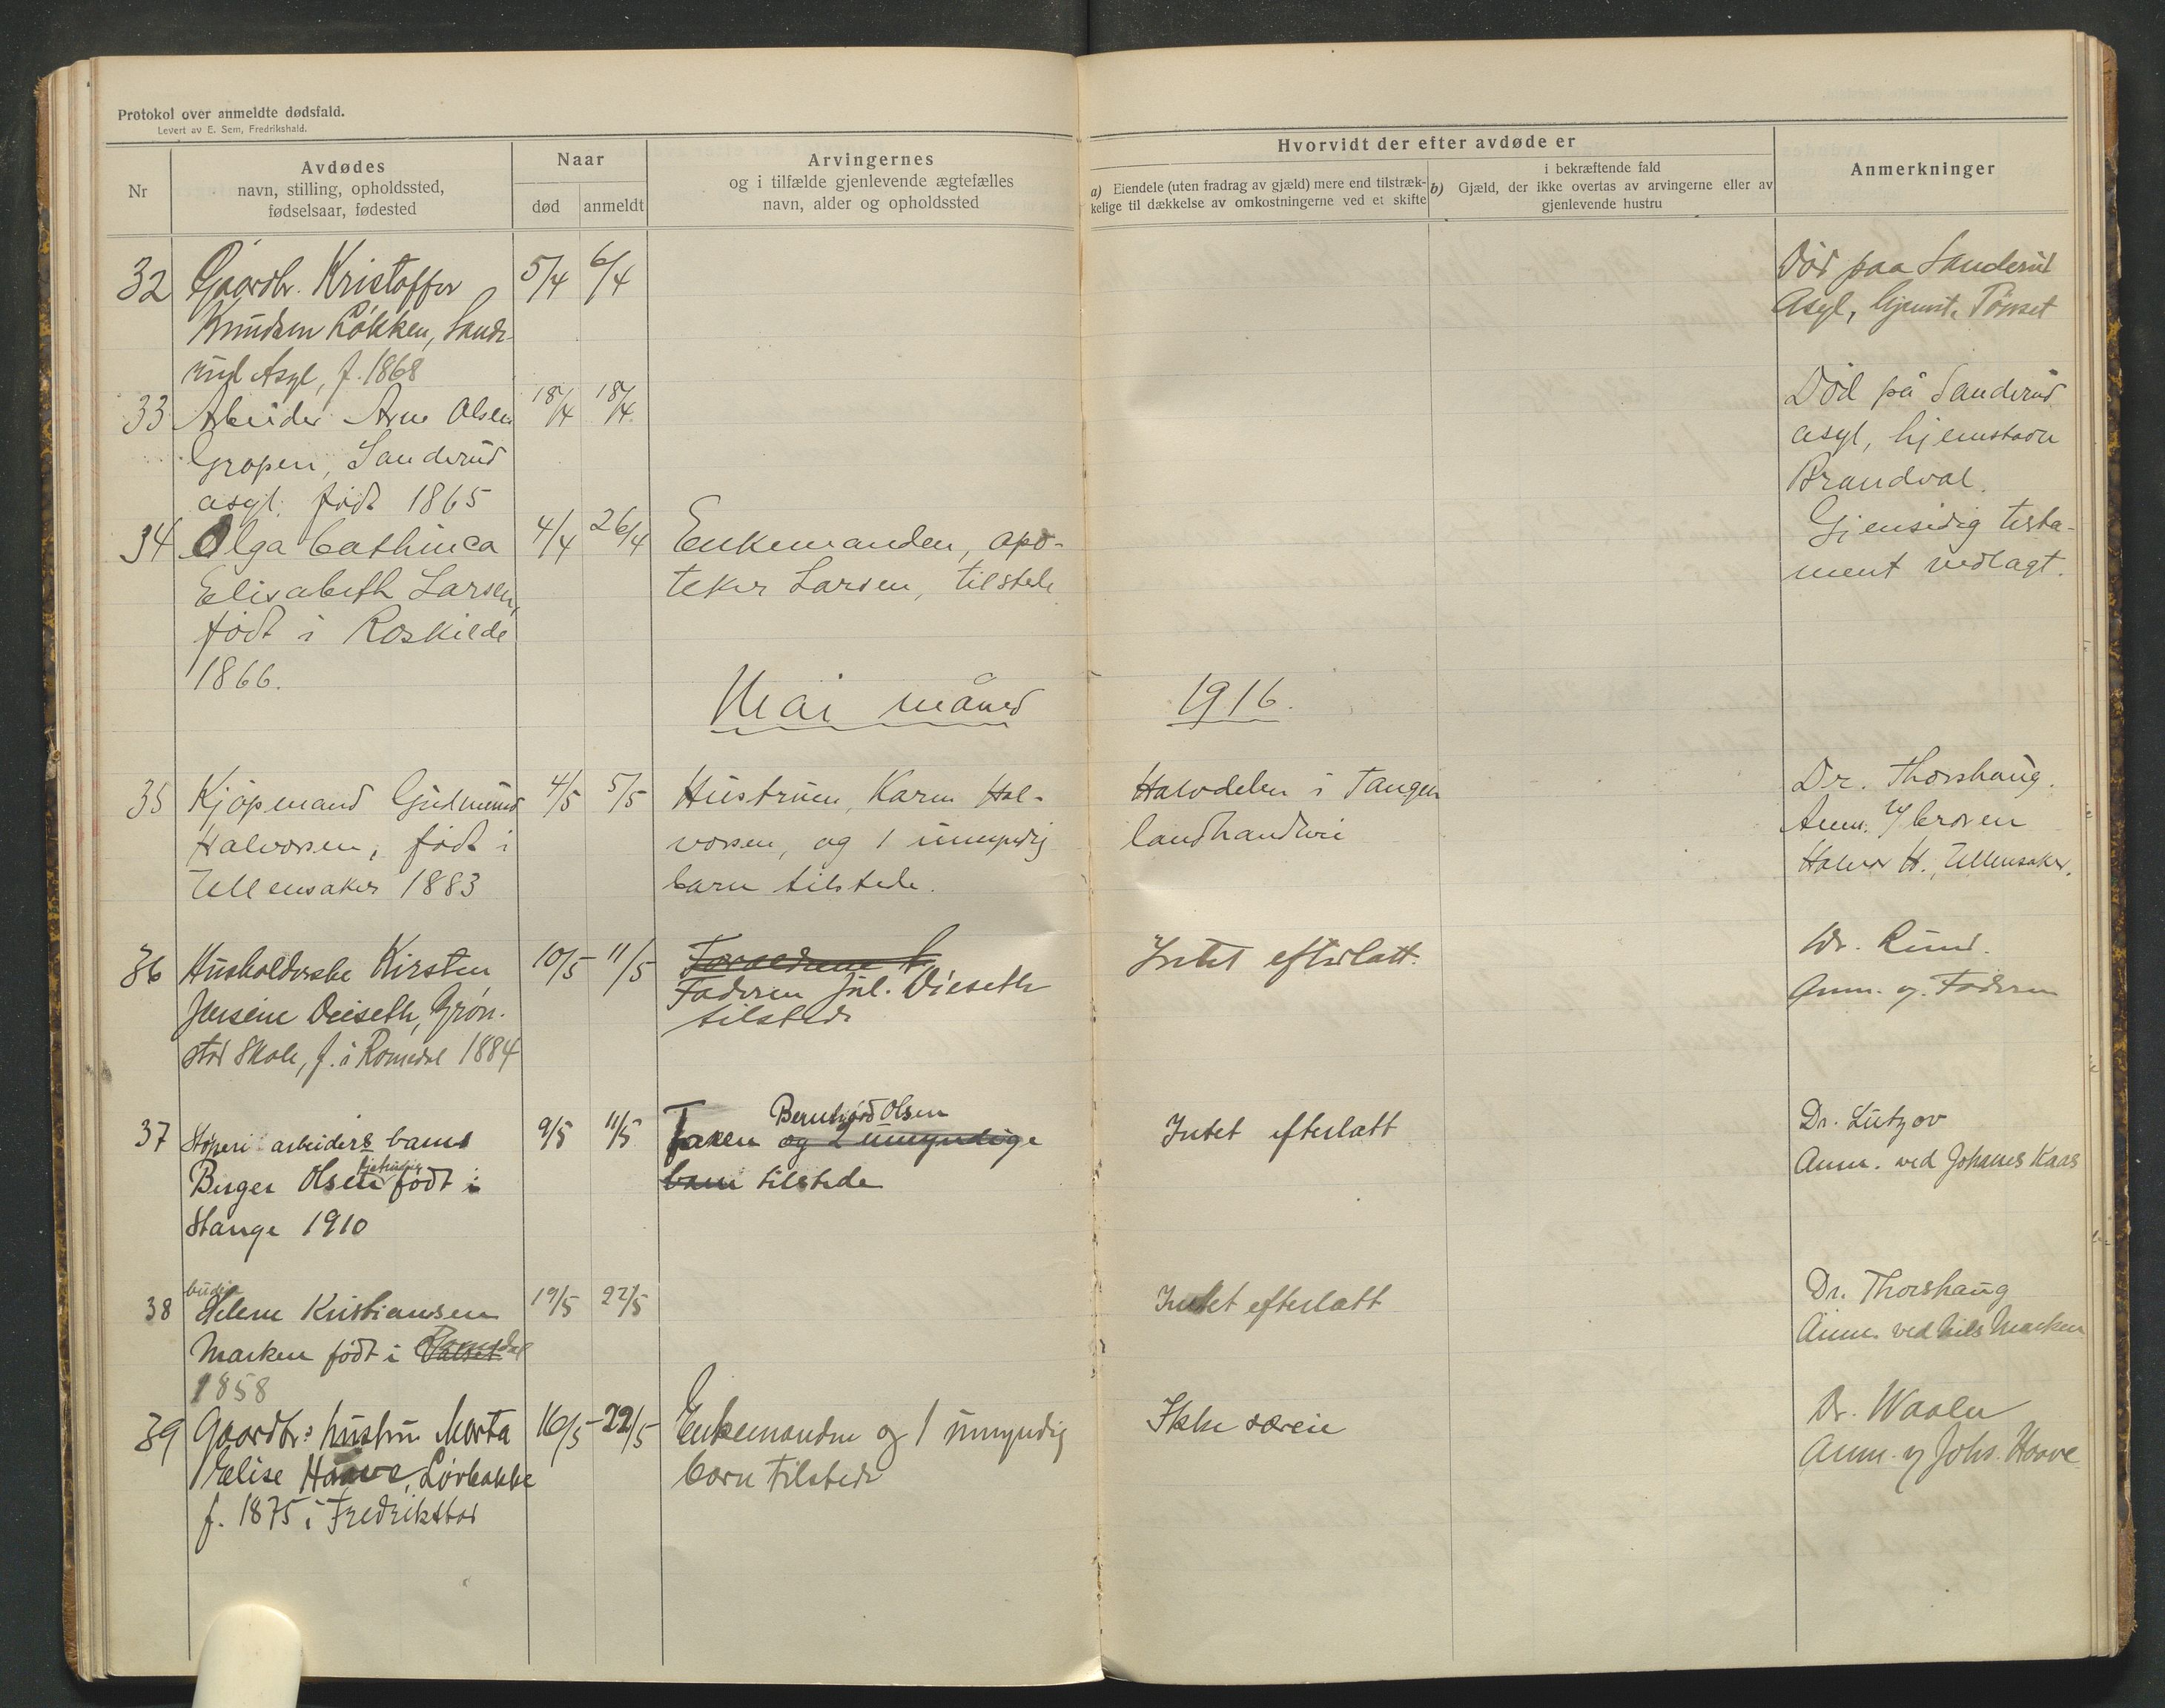 Protokol over anmeldte dødsfald.
Levert av E. Sem, Fredrikshald.
Nr
Avdødes
navn, stilling, opholdssted,
fødselsaar, fødested
Naar
død
anmeldt
Arvingernes
og i tilfælde gjenlevende ægtefælles
navn, alder og opholdssted
Hvorvidt der efter avdøde er
a) Eiendele (uten fradrag av gjæld) mere end tilstræk-
kelige til dækkelse av omkostningerne ved et skifte
i bekræftende fald
b) Gjæld, der ikke overtas av arvingerne eller av
gjenlevende hustru
Anmerkninger
32 Gaardbr. Kristoffer 5/4 6/4
Knudsen Løkken, Sande-
rud Asyl, f. 1868
Død paa Sanderud
Asyl, hjemst. Tønset
33 Arbeider Arne Olsen 18/4 18/4
Gropen, Sanderud
asyl, født 1865
Død på Sanderud
asyl, hjemstavn
Brandval.
34 Olga Cathinca 4/4 26/4 Enkemanden, apo-
Elisabeth Larsen, teker Larsen, tilstede
født i Roskilde
1866.
Gjensidig testa-
ment vedlagt.
Mai måned 1916.
35 Kjøpmand Gudmund 4/5 5/5 Hustruen, Karen Hal-
Halvorsen, født i vorsen, og 1 umyndig
Ullensaker 1883 barn tilstede.
Halvdelen i Tangen
landhandleri
Dr. Thorshaug.
Anm. v/ broren
Halvor H., Ullensaker.
36 Husholderske Kirsten 10/5 11/5 Forældrene
Jensine Dieseth, Grøn- Faderen Jul. Dieseth
stad Skole, f. i Romedal 1884 tilstede
Intet efterlatt.
Dr. Ruud.
Anm. v. Faderen
37 Støperiarbeiders barn 9/5 11/5 Faren Bernhard Olsen og 2 umyndige
Birger Olsen født i barn tilstede
Stange 1910
Intet efterlatt
Dr. Lützov
Anm. ved Johannes Kaas
38 budeie
Helene Kristiansen 19/5 22/5
Marken født i Romedal
1858
Intet efterlatt
Dr. Thorshaug
Anm. ved Nils Marken
39 Gaardbr.s hustru Marta 16/5 22/5 Enkemanden og 1 umyndig
Elise Haave, Løvbakke barn tilstede
f. 1875 i Fredrikstad
Ikke særeie
Dr. Waaler
Anm. v/ Johs. Haave